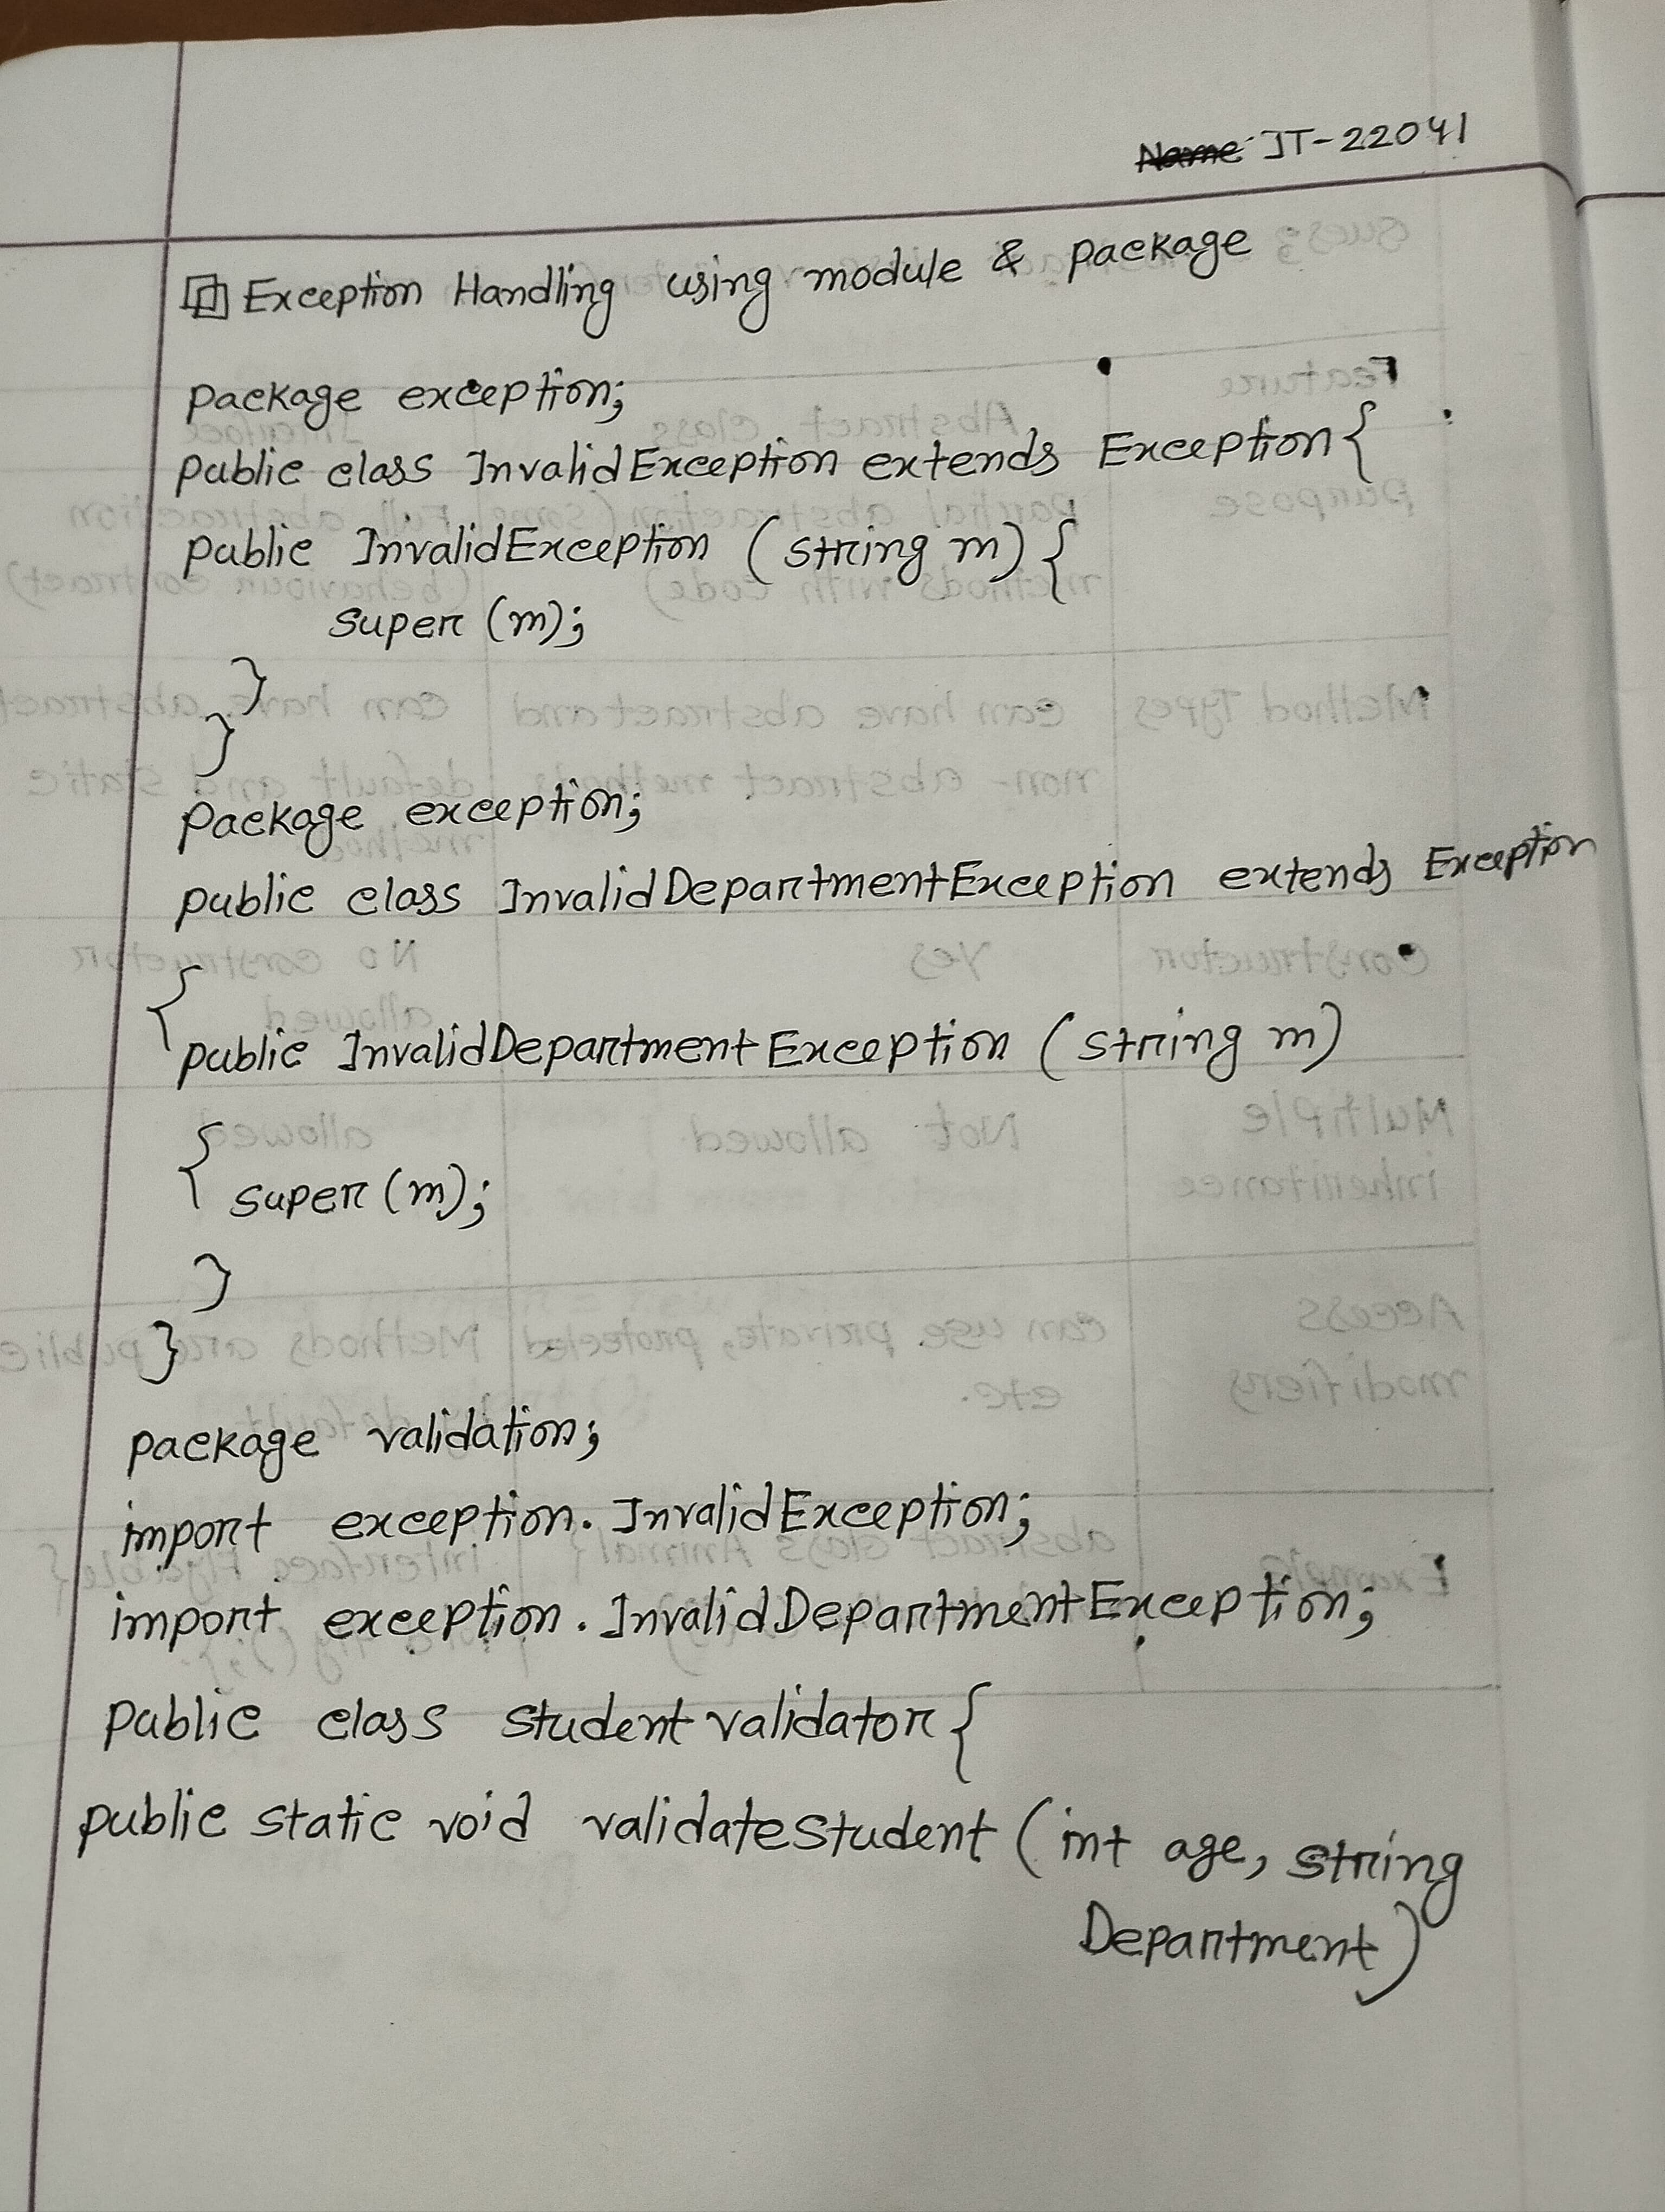 Name IT-22041
Exception Handling using module & package
package exception;
public class InvalidException extends Exception{
public InvalidException (string m) {
super (m);
}
}
package exception;
public class InvalidDepartmentException extends Exception
{
public InvalidDepartmentException (string m)
{
super (m);
}
}
package validation;
import exception. InvalidException;
import exception. InvalidDepartmentException;
public class student validator {
public static void validatestudent (int age, string
Department)